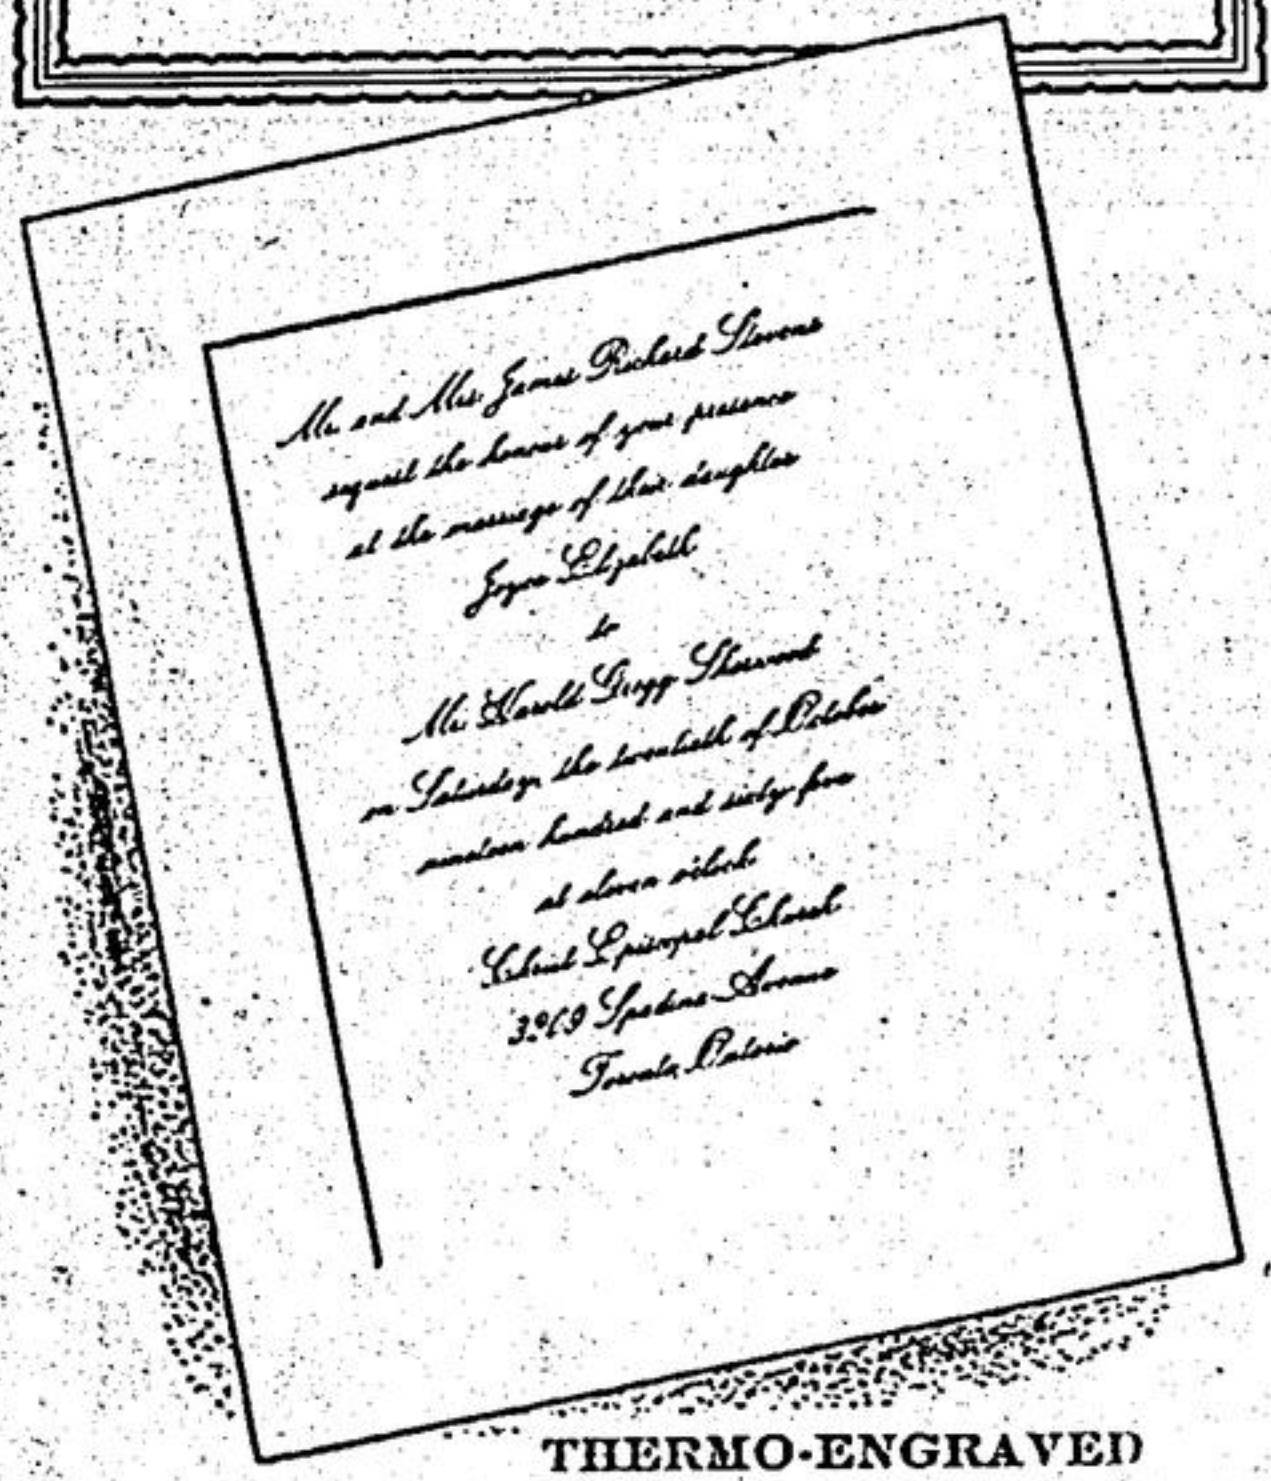 Mr. and Mrs. James Richard Stevens
request the honour of your presence
at the marriage of their daughter
Joyce Elizabeth
to
Mr. Harold Gregg Sherwood
on Saturday, the twentieth of October
nineteen hundred and sixty-five
at eleven o'clock
Christ Episcopal Church
Spadina Avenue
Toronto, Ontario
THERMO-ENGRAVED